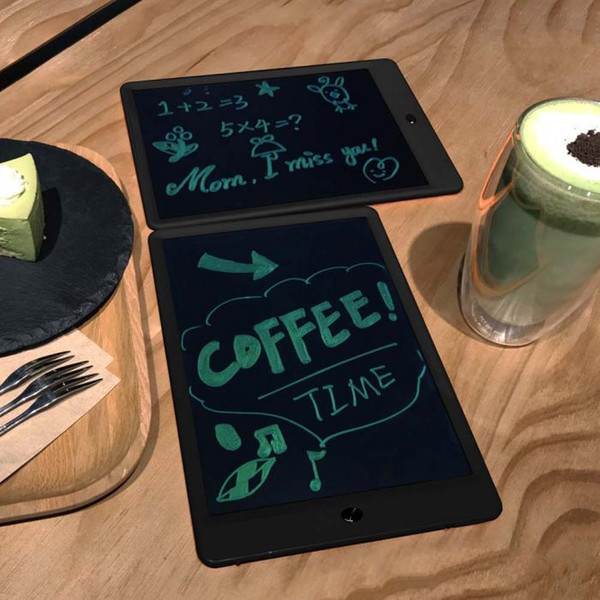 1+2=3
5×4=?
Mom, I miss you!
COFFEE!
TIME